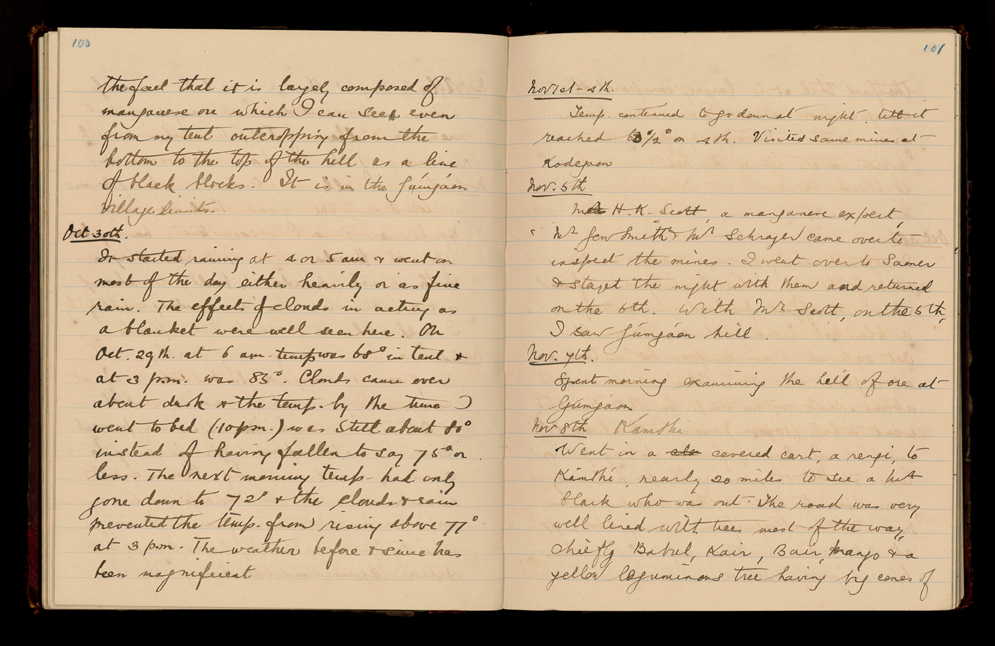 100
the fact that it is largely composed of
manganese ore which I can see even
from my tent outcropping from the
bottom to the top of the hill as a line
of black blocks. It is in the Gúmgáon
village limits.
Oct 30th.
It started raining at 4 or 5 am & went on
most of the day either heavily or as fine
rain. The effects of clouds in acting as
a blanket were well seen here. On
Oct. 29th. at 6 am. temp was 68° in tent &
at 3 p.m. was 85°. Clouds came over
about dusk & the temp. by the time I
went to bed (10 p.m.) was still about 80°
instead of having fallen to say 75° or
less. The next morning temp. had only
gone down to 72° & the clouds & rain
prevented the temp. from rising above 77°
at 3 p.m. The weather before & since has
been magnificent
101
Nov 1st - 4th.
Temp. continued to go down at night till it
reached 63½° on 4th. Visited some mines at
Kodegaon
Nov. 5th
H. K. Scott, a manganese expert,
Mr Smith & Mr Schrager came over to
inspect the mines. I went over to Saoner
& stayed the night with them and returned
on the 6th. With Mr Scott, on the 5th,
I saw Gúmgáon hill.
Nov. 7th.
Spent morning examining the hill of ore at
Gúmgáon
Nov 8th Kámthi
Went in a covered cart, a rengi, to
Kámthi, nearly 20 miles to see a
who was out. The road was very
well lined with trees most of the way,
chiefly Babul, Kair, Bair, Mango & a
yellow leguminous tree having big cones of